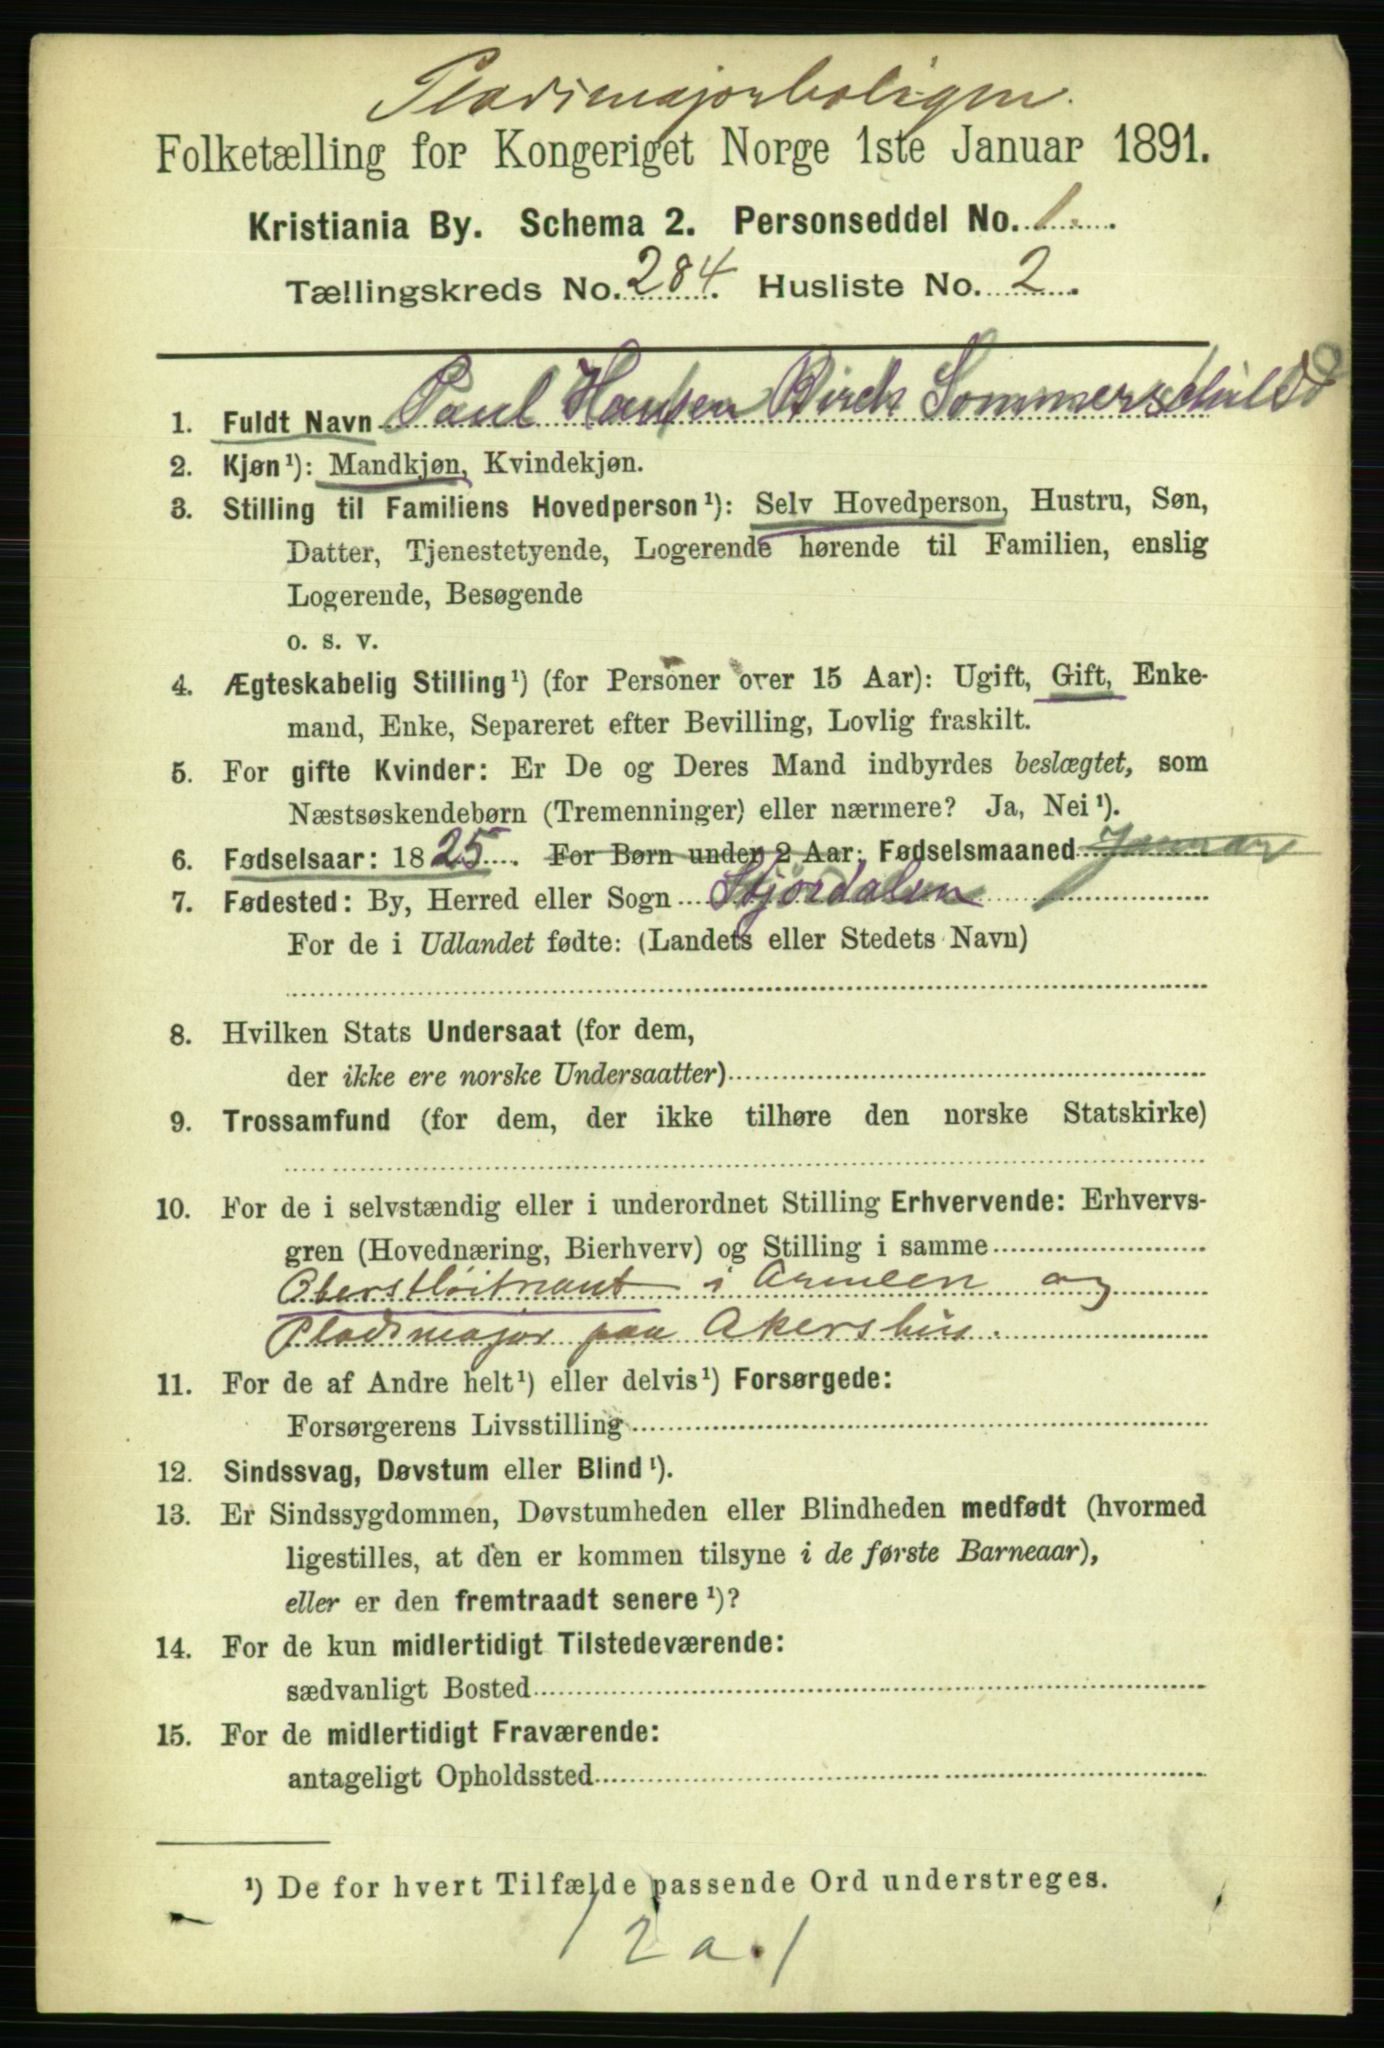 Pladsmajorboligen.
Folketælling for Kongeriget Norge 1ste Januar 1891.
Kristiania By. Schema 2. Personseddel No. 1.
Tællingskreds No. 284. Husliste No. 2.
1. Fuldt Navn Paul Hansen Birch Sommerschield
2. Kjøn¹): Mandkjøn, Kvindekjøn.
3. Stilling til Familiens Hovedperson¹): Selv Hovedperson, Hustru, Søn,
Datter, Tjenestetyende, Logerende hørende til Familien, enslig
Logerende, Besøgende
o. s. v.
4. Ægteskabelig Stilling¹) (for Personer over 15 Aar): Ugift, Gift, Enke-
mand, Enke, Separeret efter Bevilling, Lovlig fraskilt.
5. For gifte Kvinder: Er De og Deres Mand indbyrdes beslægtet, som
Næstsøskendebørn (Tremenninger) eller nærmere? Ja, Nei¹).
6. Fødselsaar: 1825. For Børn under 2 Aar: Fødselsmaaned Januar
7. Fødested: By, Herred eller Sogn Stjørdalen
For de i Udlandet fødte: (Landets eller Stedets Navn)
8. Hvilken Stats Undersaat (for dem,
der ikke ere norske Undersaatter)
9. Trossamfund (for dem, der ikke tilhøre den norske Statskirke)
10. For de i selvstændig eller i underordnet Stilling Erhvervende: Erhvervs-
gren (Hovednæring, Bierhverv) og Stilling i samme
Oberstløitnant i Armeen og
Pladsmajor paa Akershus.
11. For de af Andre helt¹) eller delvis¹) Forsørgede:
Forsørgerens Livsstilling
12. Sindssvag, Døvstum eller Blind¹).
13. Er Sindssygdommen, Døvstumheden eller Blindheden medfødt (hvormed
ligestilles, at den er kommen tilsyne i de første Barneaar),
eller er den fremtraadt senere¹)?
14. For de kun midlertidigt Tilstedeværende:
sædvanligt Bosted
15. For de midlertidigt Fraværende:
antageligt Opholdssted
¹) De for hvert Tilfælde passende Ord understreges.
/ 2 a. /